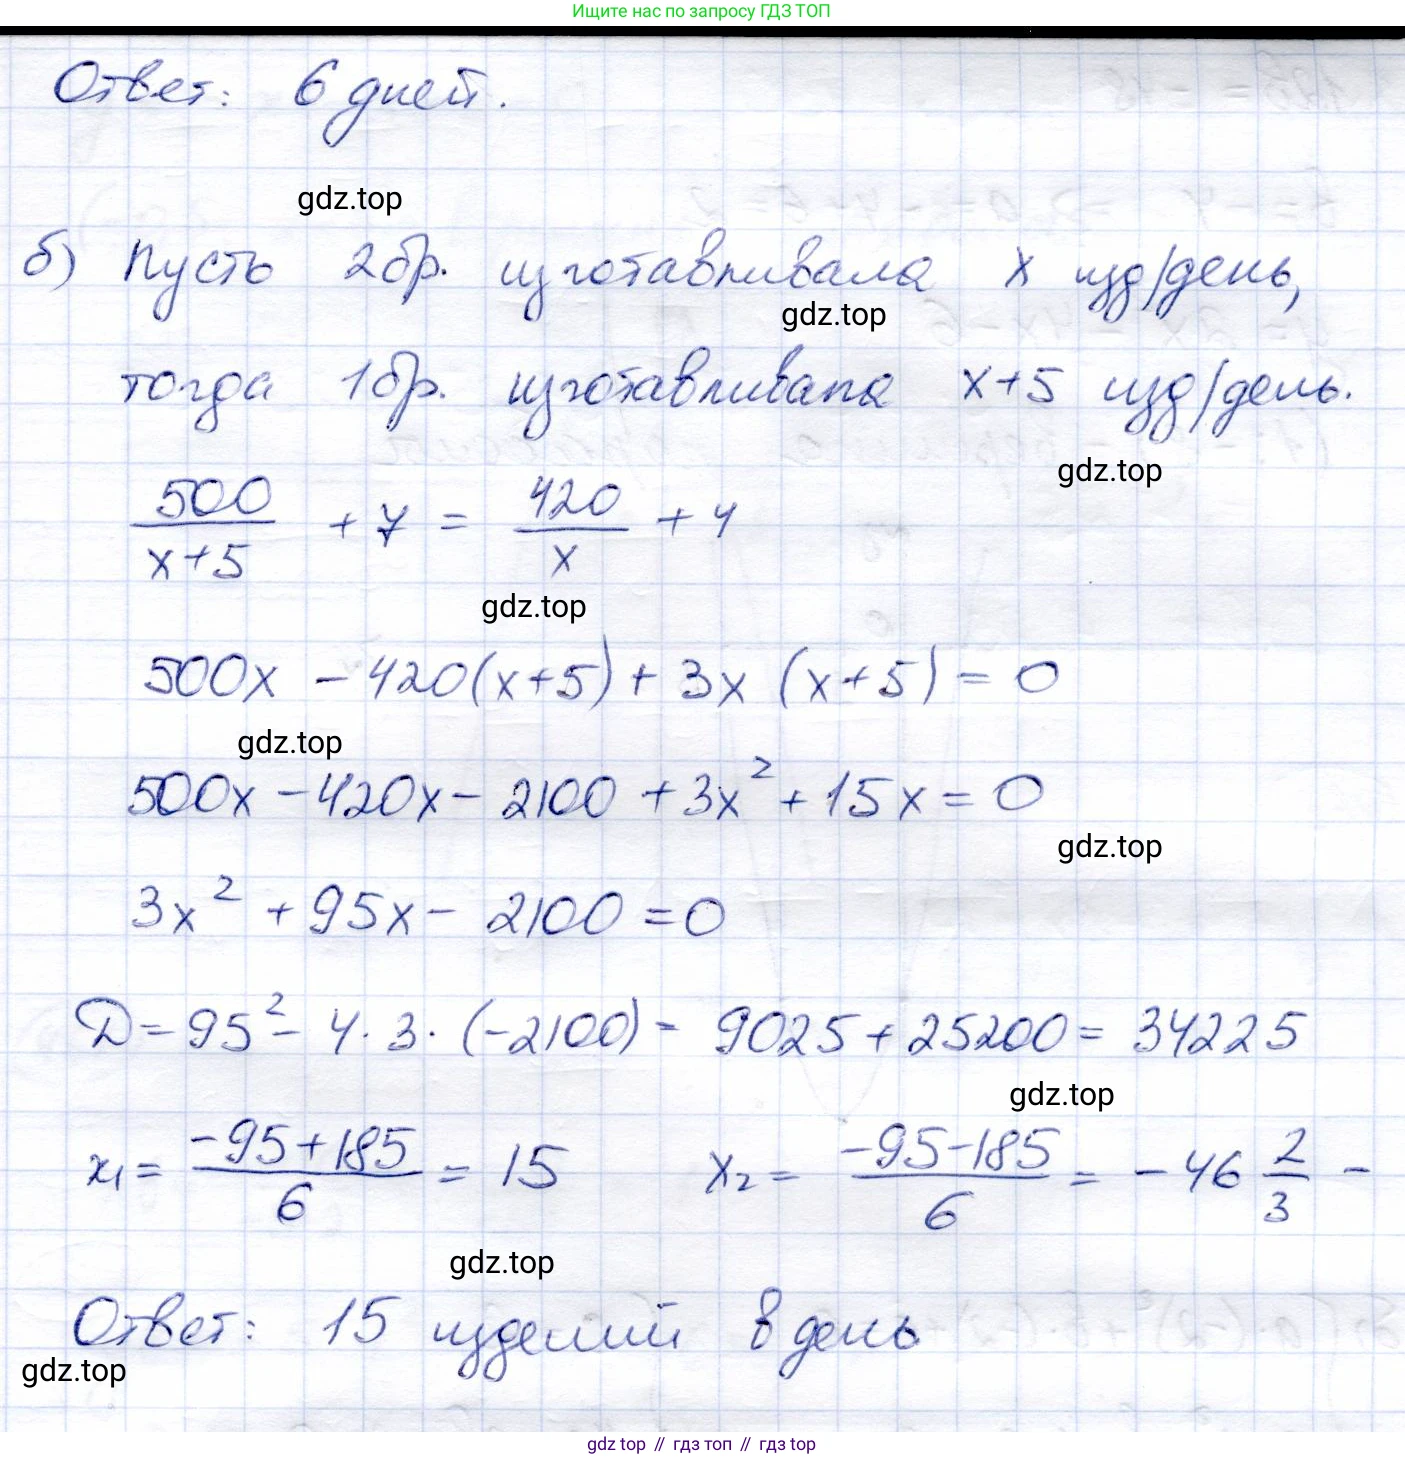 Ищите нас по запросу ГДЗ ТОП
Ответ: 6 дней.
gdz.top
б) Пусть 2бр. изготавливала x изд/день,
gdz.top
тогда 1бр. изготавливала x+5 изд/день.
gdz.top
500/(x+5) + 7 = 420/x + 4
gdz.top
500x - 420(x+5) + 3x (x+5) = 0
gdz.top
500x - 420x - 2100 + 3x² + 15x = 0
gdz.top
3x² + 95x - 2100 = 0
D = 95² - 4 · 3 · (-2100) = 9025 + 25200 = 34225
gdz.top
x₁ = (-95+185)/6 = 15 x₂ = (-95-185)/6 = -46 2/3 -
gdz.top
Ответ: 15 изделий в день
gdz.top
gdz top // гдз топ // gdz top